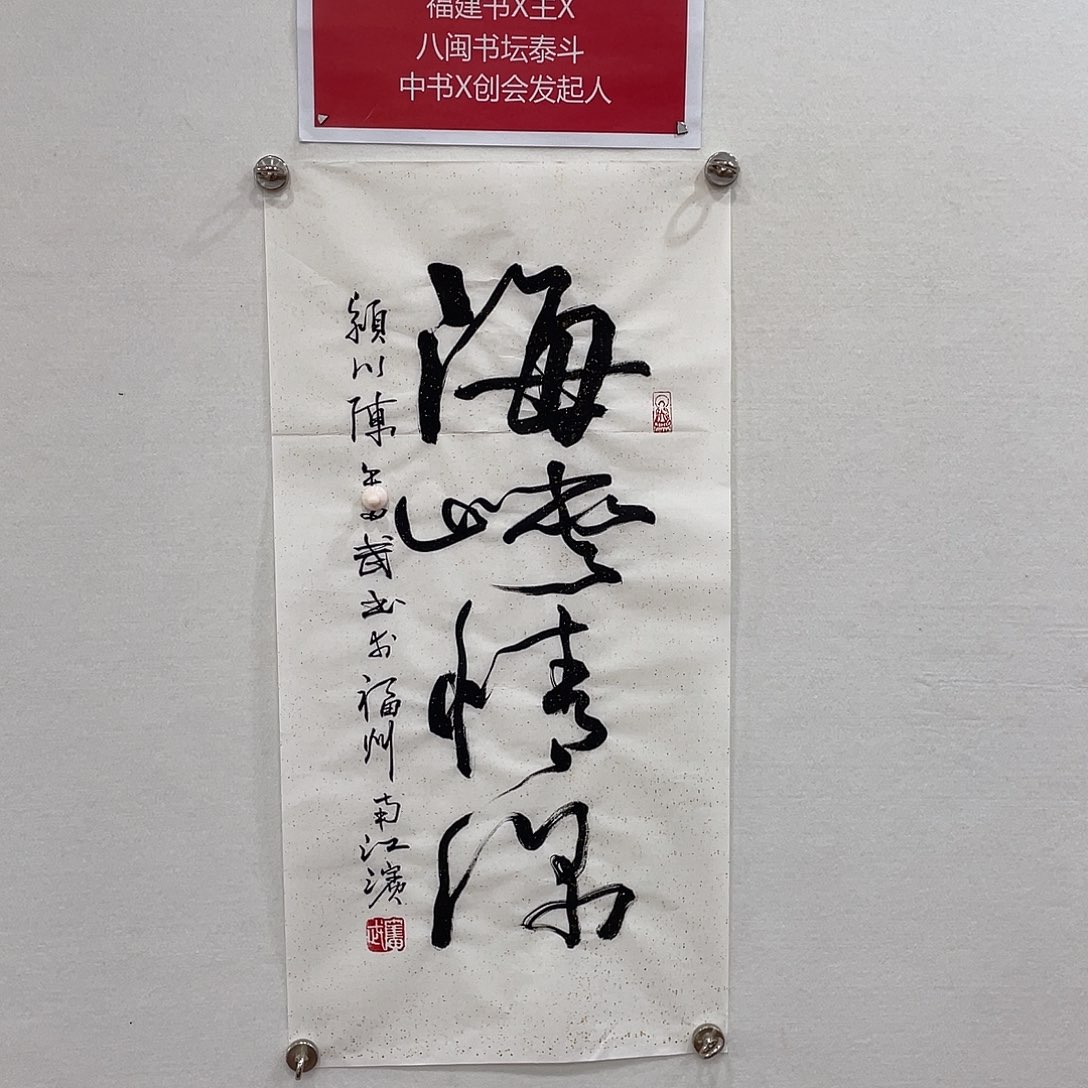 福建书X主X
八闽书坛泰斗
中书X创会发起人
海峽情深
潁川陳奮武书於福州南江濱